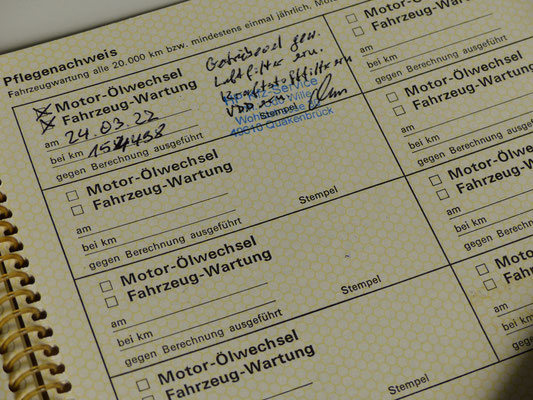 Pflegenachweis
Fahrzeugwartung alle 20.000 km bzw. mindestens einmal jährlich, Mo
Motor-Ölwechsel
Fahrzeug-Wartung
am 24.03.22
bei km 154498
gegen Berechnung ausgeführt
Getriebeoel gew.
Luftfilter ern.
Kraftstoffilter ern
VDD ern.
-Service
Wille
Woh
49610 Quakenbrück
Stempel
Motor-Ölwechsel
Fahrzeug-Wartung
am
bei km
gegen Berechnung ausgeführt
Stempel
Motor-Ölwechsel
Fahrzeug-Wartung
am
bei km
gegen Berechnung ausgeführt
Stempel
Motor-Ölwechsel
Fahrzeug-Wartung
am
Stempel
Motor-Ölwechsel
Fahrzeug-Wartung
am
bei km
gegen Berechnung ausgeführt
Motor-Ölwechsel
Fahrzeug-Wartung
am
bei km
gegen Berechnung aus
Motor-Ölw
Fahrzeug-W
am
bei km
gegen Berechnung
Motor-
Fahrze